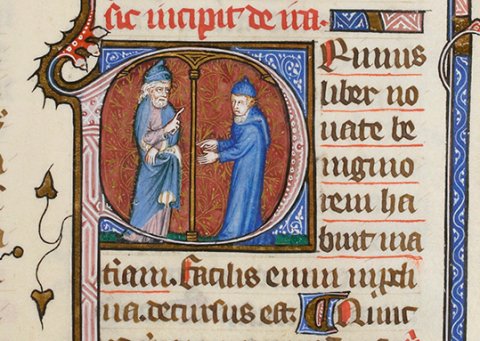 sic incipit de ira.
Primus
liber no
uate be
nignio
rem ha
buit ma
t̃iam. facilis enim in pcli
ua. decursus est. Nunc